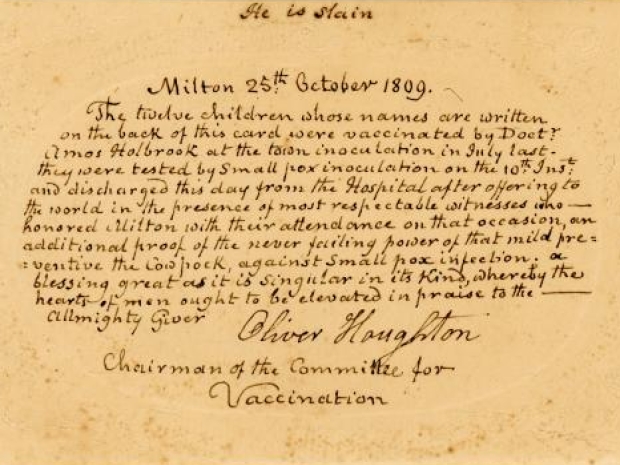 He is slain
Milton 25th October 1809.
The twelve children whose names are written
on the back of this card were vaccinated by Doctr
Amos Holbrook at the town inoculation in July last-
they were tested by Small pox inoculation on the 10th Inst
and discharged this day from the Hospital after offering to
the world in the presence of most respectable witnesses who—
honored Milton with their attendance on that occasion, an
additional proof of the never failing power of that mild pre=
=ventive the Cow pock, against Small pox infection. a
blessing great as it is singular in its kind, whereby the
hearts of men ought to be elevated in praise to the —
Allmighty Giver
Oliver Houghton
Chairman of the Committee for
Vaccination